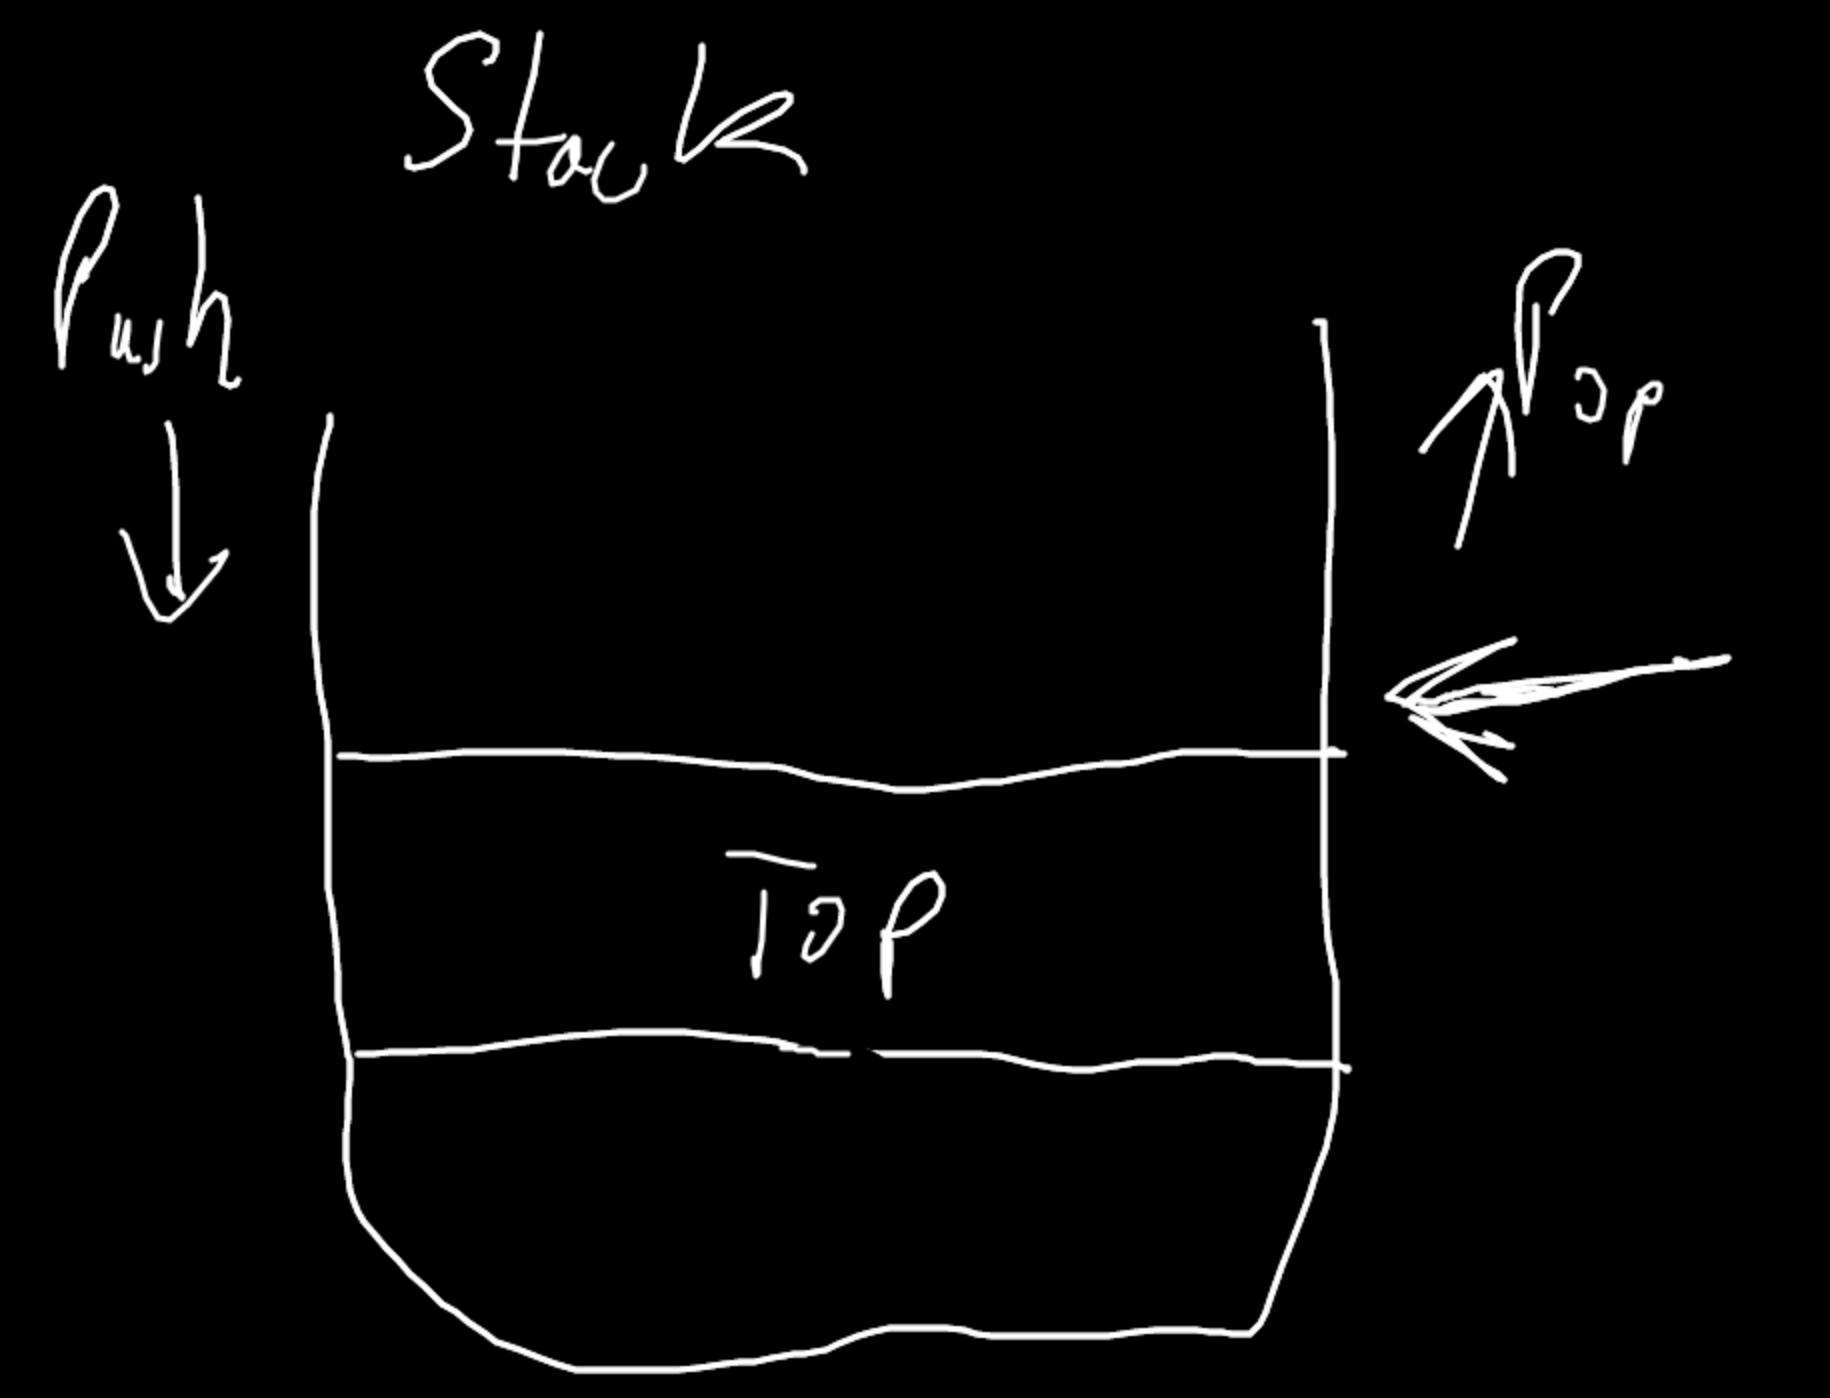 Stack
Push
Pop
Top